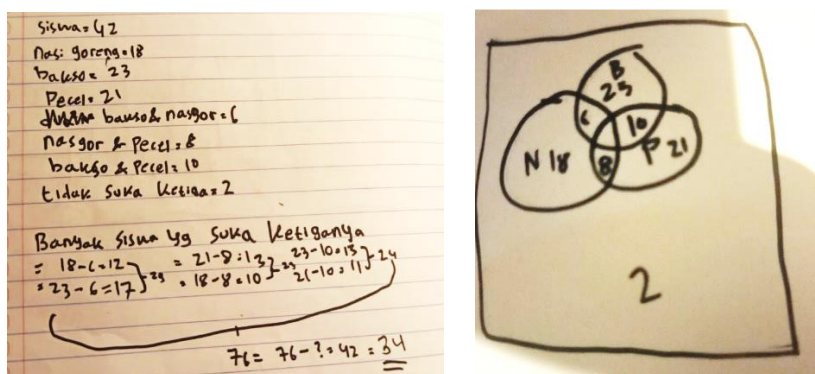 Siswa = 42
nasi goreng = 18
bakso = 23
Pecel = 21
bakso & nasgor = 6
nasgor & Pecel = 8
bakso & Pecel = 10
tidak suka ketiga = 2
Banyak siswa yg suka ketiganya
= 18-6=12 } 29 = 21-8=13 } 23 23-10=13 } 24
= 23-6=17 = 18-8=10 21-10=11
76 = 76-?=42 = 34
B
23
6 10
N 18 8 P 21
2